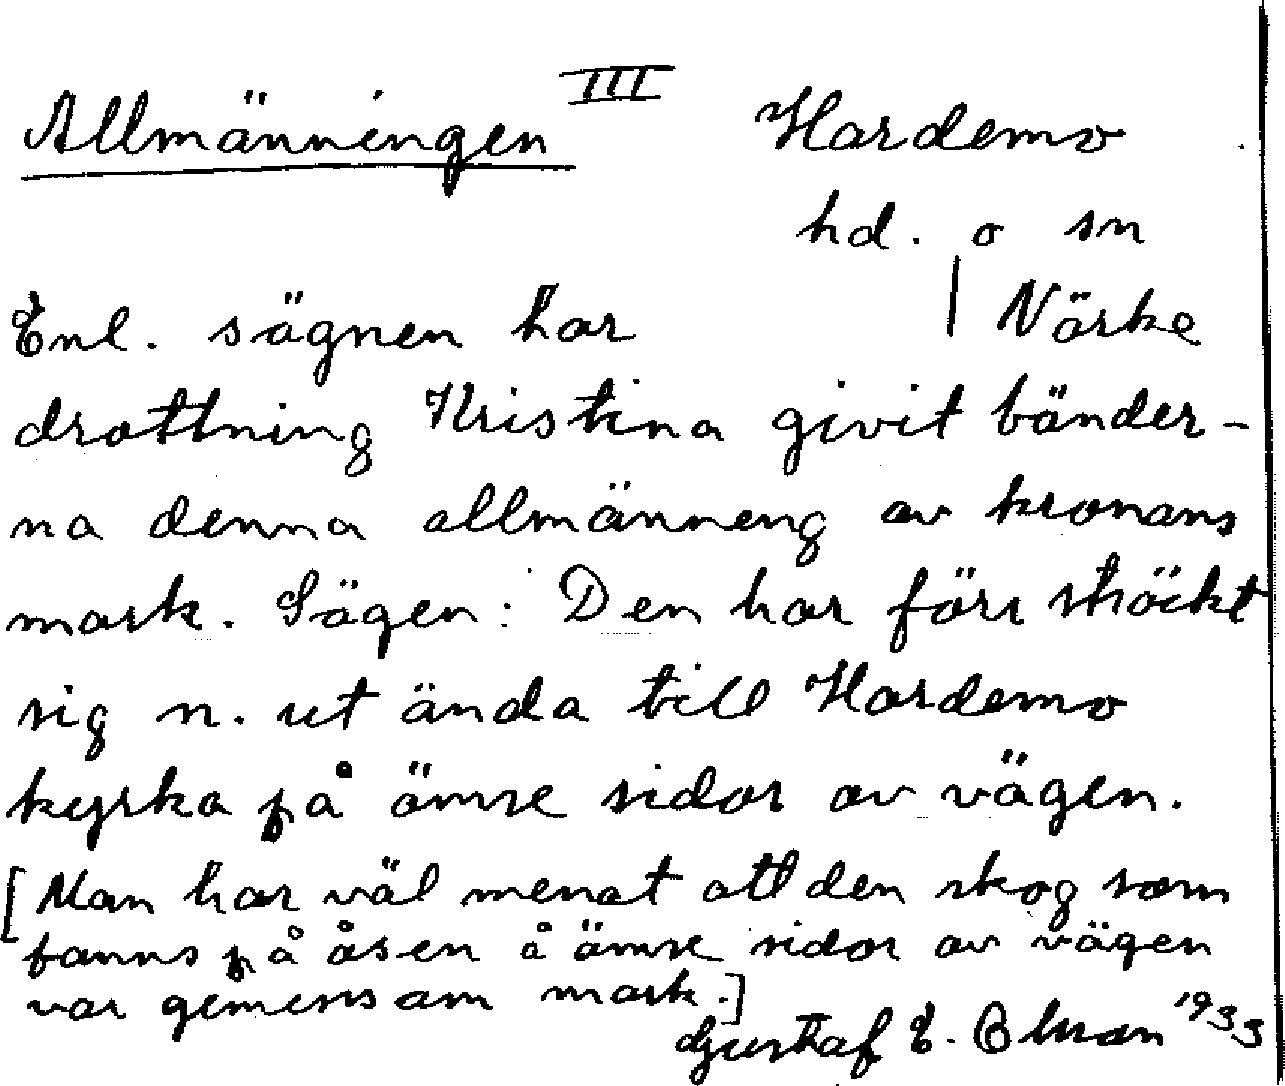 Allmänningen III Hardemo
hd. o sn
Enl. sägnen har | Närke
drottning Kristina givit bänder-
na denna allmänneng av kronans
mark. Sägen: Den har förr sträckt
sig n. ut ända till Hardemo
kyrka på ömse sidor av vägen.
[Man har väl menat att den skog som
fanns på åsen å ömse sidor av vägen
var gemensam mark.]
Gustaf E. 1933